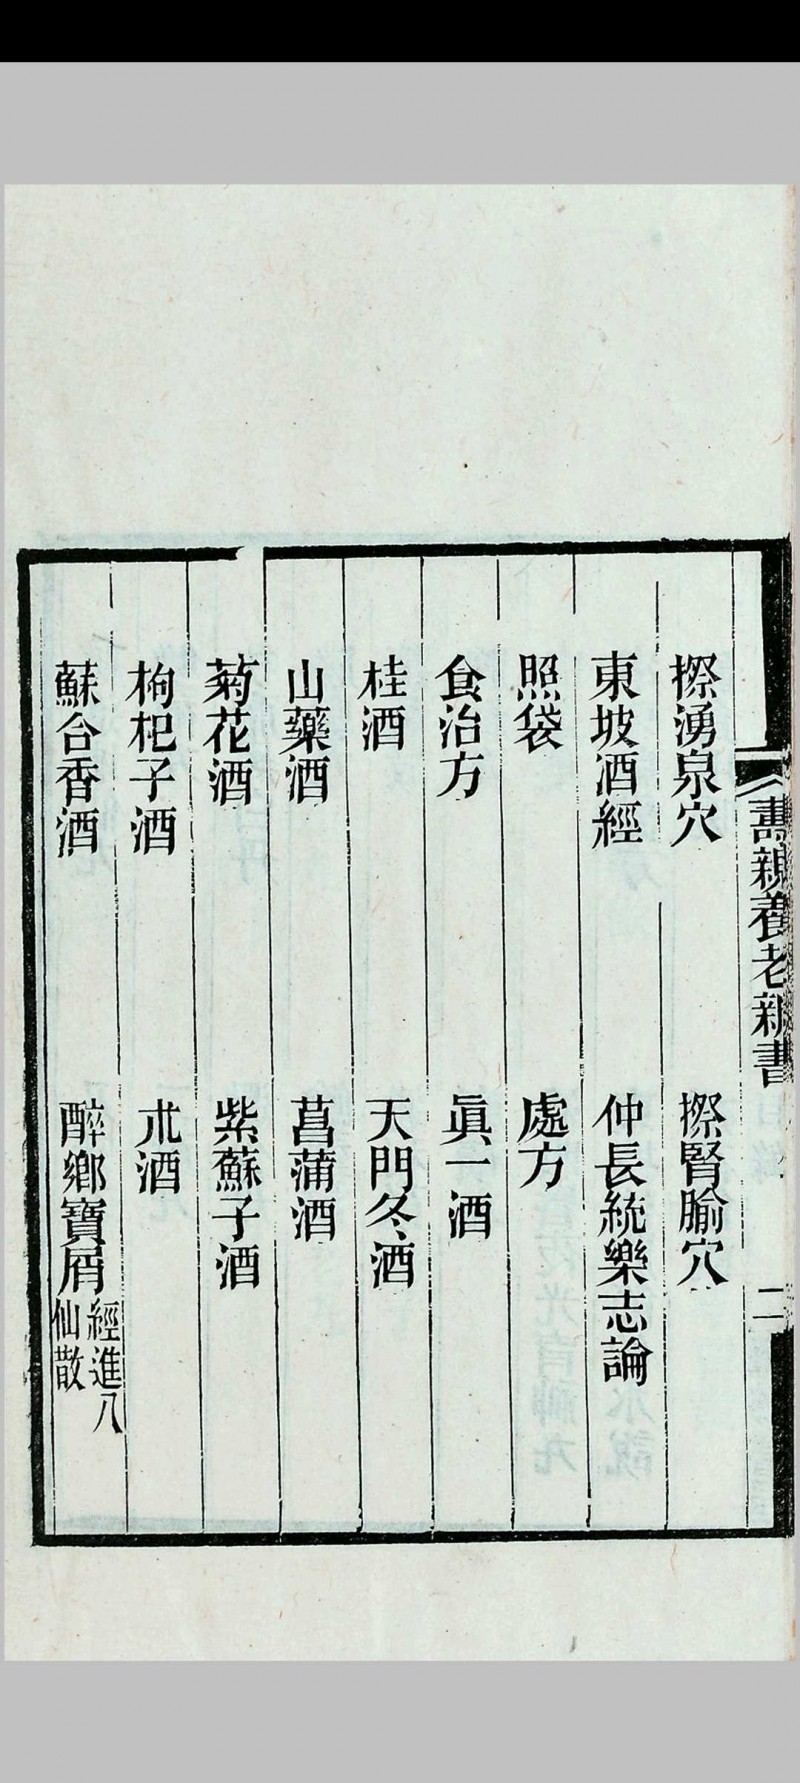 壽親養老新書
二
擦湧泉穴 擦腎腧穴
東坡酒經 仲長統樂志論
照袋 處方
食治方 眞一酒
桂酒 天門冬酒
山藥酒 菖蒲酒
菊花酒 紫蘇子酒
枸杞子酒 朮酒
蘇合香酒 醉鄉寶屑經進八仙散